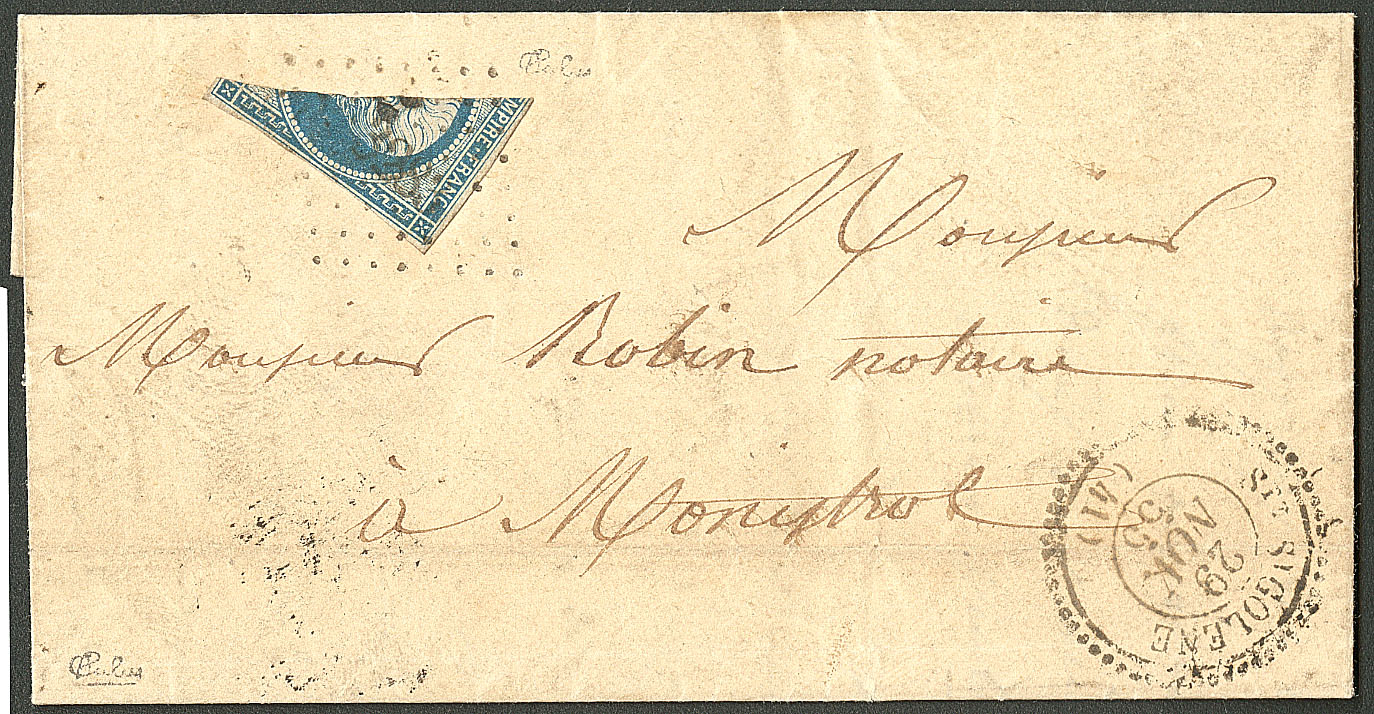 MPIRE · FRANC
Monsieur
Monsieur Robin notaire
à Monistrol
STE SYGOLENE
29
AOUT
55
(41)
Calves